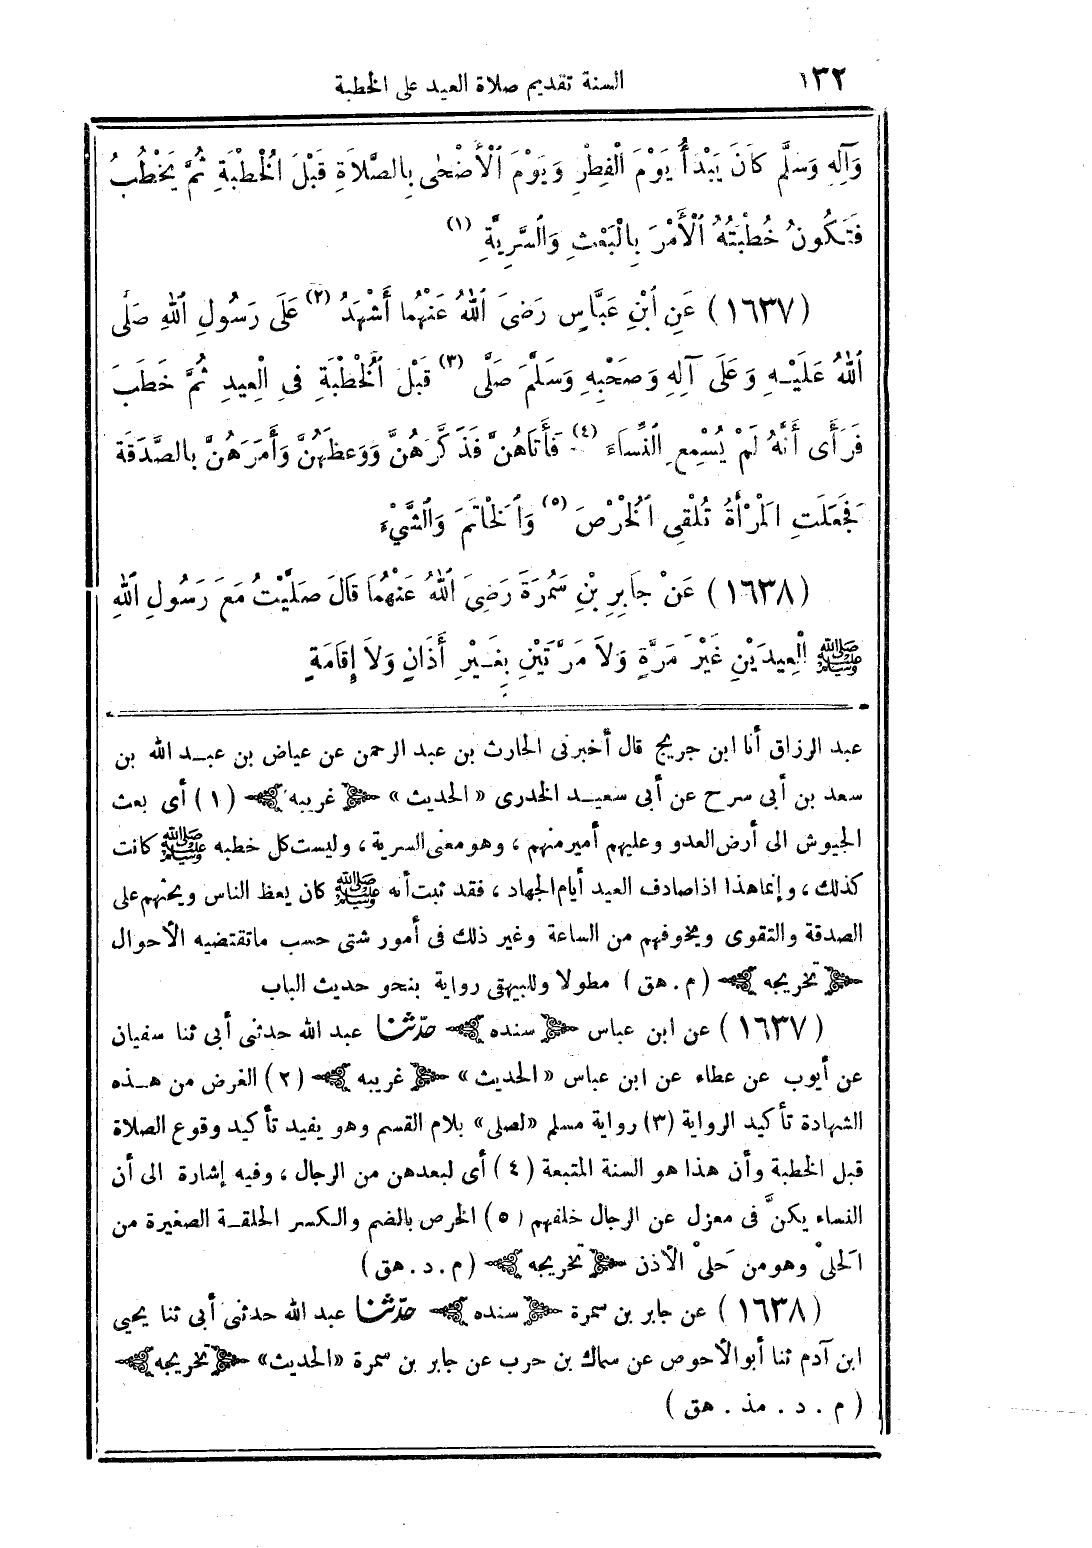 ١٣٢ السنة تقديم صلاة العيد على الخطبة
وَآلِهِ وَسَلَّمَ كَانَ يَبْدَأُ يَوْمَ الْفِطْرِ وَيَوْمَ الْأَضْحَى بِالصَّلَاةِ قَبْلَ الْخُطْبَةِ ثُمَّ يَخْطُبُ
فَتَكُونُ خُطْبَتُهُ الْأَمْرَ بِالْبَعْثِ وَالسَّرِيَّةِ (١)
(١٦٣٧) عَنِ ابْنِ عَبَّاسٍ رَضِىَ اللهُ عَنْهُمَا أَشْهَدُ (٢) عَلَى رَسُولِ اللهِ صَلَّى
اللهُ عَلَيْهِ وَعَلَى آلِهِ وَصَحْبِهِ وَسَلَّمَ صَلَّى (٣) قَبْلَ الْخُطْبَةِ فِى الْعِيدِ ثُمَّ خَطَبَ
فَرَأَى أَنَّهُ لَمْ يُسْمِعِ النِّسَاءَ (٤) فَأَتَاهُنَّ فَذَكَّرَهُنَّ وَوَعَظَهُنَّ وَأَمَرَهُنَّ بِالصَّدَقَةِ
فَجَعَلَتِ الْمَرْأَةُ تُلْقِى الْخُرْصَ (٥) وَالْخَاتَمَ وَالشَّيْءَ
(١٦٣٨) عَنْ جَابِرِ بْنِ سَمُرَةَ رَضِىَ اللهُ عَنْهُمَا قَالَ صَلَّيْتُ مَعَ رَسُولِ اللهِ
ﷺ الْعِيدَيْنِ غَيْرَ مَرَّةٍ وَلَا مَرَّتَيْنِ بِغَيْرِ أَذَانٍ وَلَا إِقَامَةٍ
عبد الرزاق أنا ابن جريج قال أخبرنى الحارث بن عبد الرحمن عن عياض بن عبد الله بن
سعد بن أبى سرح عن أبى سعيد الخدرى «الحديث» ﴿غريبه﴾ (١) أى بعث
الجيوش الى أرض العدو وعليهم أمير منهم ، وهو معنى السرية ، وليست كل خطبه ﷺ كانت
كذلك ، وإنما هذا اذا صادف العيد أيام الجهاد ، فقد ثبت أنه ﷺ كان يعظ الناس ويحثهم على
الصدقة والتقوى ويخوفهم من الساعة وغير ذلك فى أمور شتى حسب ما تقتضيه الأحوال
﴿تخريجه﴾ (م . هق) مطولا وللبيهقى رواية بنحو حديث الباب
(١٦٣٧) عن ابن عباس ﴿سنده﴾ حدّثنا عبد الله حدثنى أبى ثنا سفيان
عن أيوب عن عطاء عن ابن عباس «الحديث» ﴿غريبه﴾ (٢) الغرض من هذه
الشهادة تأكيد الرواية (٣) رواية مسلم «لصلى» بلام القسم وهو يفيد تأكيد وقوع الصلاة
قبل الخطبة وأن هذا هو السنة المتبعة (٤) أى لبعدهن من الرجال ، وفيه إشارة الى أن
النساء يكنَّ فى معزل عن الرجال خلفهم (٥) الخرص بالضم والكسر الحلقة الصغيرة من
الحلىْ وهو من حلىْ الأذن ﴿تخريجه﴾ (م . د . هق)
(١٦٣٨) عن جابر بن سمرة ﴿سنده﴾ حدّثنا عبد الله حدثنى أبى ثنا يحيى
ابن آدم ثنا أبو الأحوص عن سماك بن حرب عن جابر بن سمرة «الحديث» ﴿تخريجه﴾
(م . د . مذ . هق)